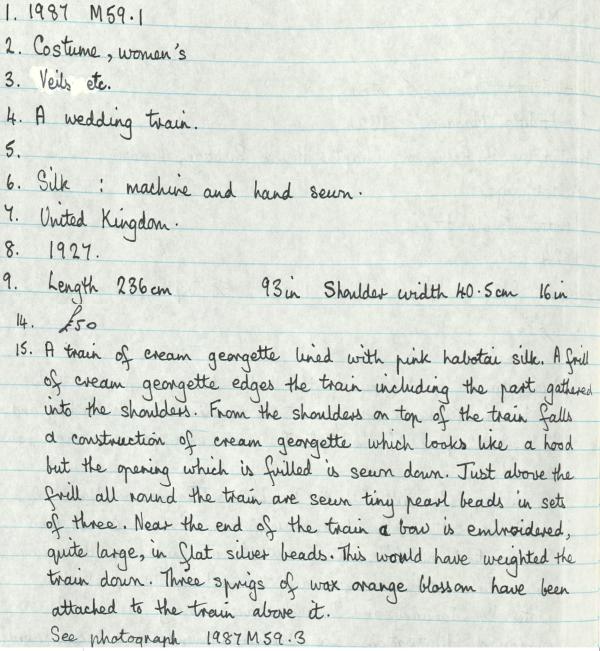 1. 1987 M59.1
2. Costume, women's
3. Veils etc.
4. A wedding train.
5.
6. Silk : machine and hand sewn.
7. United Kingdom.
8. 1927.
9. Length 236cm 93in Shoulder width 40.5cm 16in
14. £50
15. A train of cream georgette lined with pink habotai silk. A frill
of cream georgette edges the train including the part gathered
into the shoulders. From the shoulders on top of the train falls
a construction of cream georgette which looks like a hood
but the opening which is frilled is sewn down. Just above the
frill all round the train are sewn tiny pearl beads in sets
of three. Near the end of the train a bow is embroidered,
quite large, in flat silver beads. This would have weighted the
train down. Three sprigs of wax orange blossom have been
attached to the train above it.
See photograph 1987M59.3